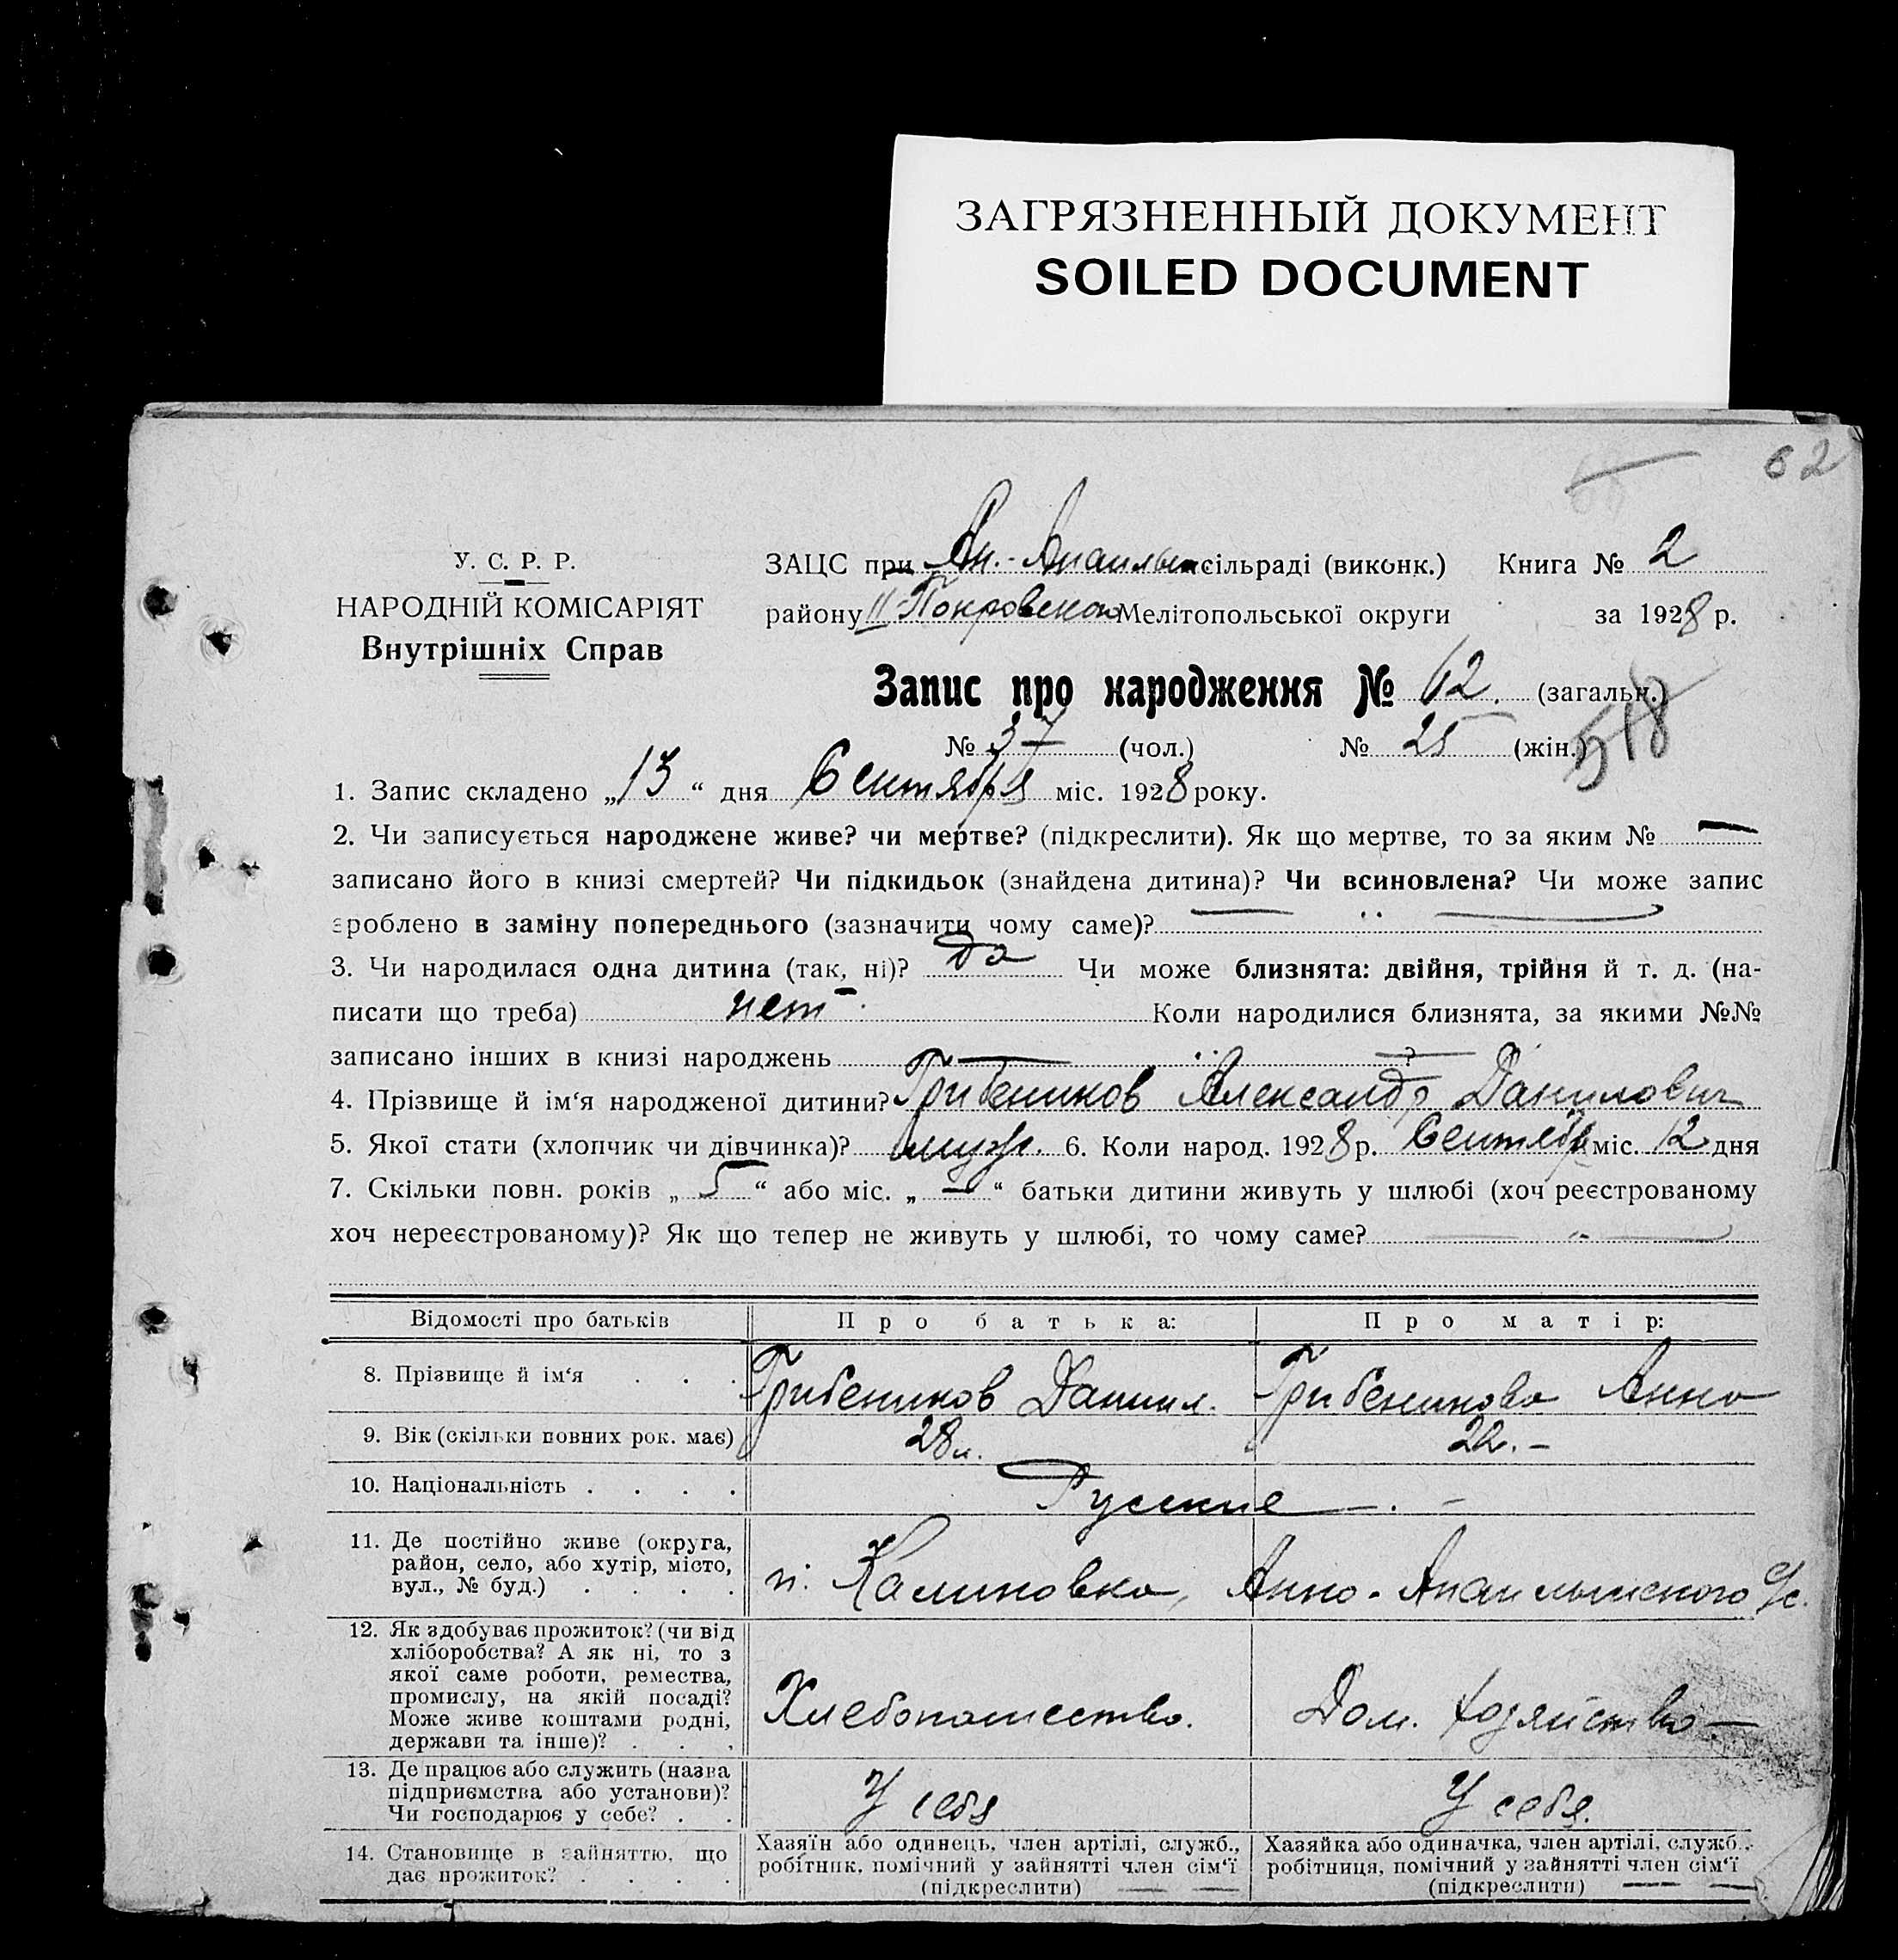 ЗАГРЯЗНЕННЫЙ ДОКУМЕНТ
SOILED DOCUMENT
62
У. С. Р. Р.
НАРОДНІЙ КОМІСАРІЯТ
Внутрішніх Справ
ЗАЦС при Ан.- сільраді (виконк.) Книга № 2
району II Покровского Мелітопольської округи за 1928 р.
Запис про народження № 62. (загальн.)
№ 37 (чол.) № 25 (жін.)
518
1. Запис складено „13“ дня Сентября міс. 1928 року.
2. Чи записується народжене живе? чи мертве? (підкреслити). Як що мертве, то за яким № —
записано його в книзі смертей? Чи підкидьок (знайдена дитина)? Чи всиновлена? Чи може запис
зроблено в заміну попереднього (зазначити чому саме)? — „ —
3. Чи народилася одна дитина (так, ні)? да Чи може близнята: двійня, трійня й т. д. (на-
писати що треба) нет. Коли народилися близнята, за якими №№
записано інших в книзі народжень — „ — ?
4. Прізвище й ім‘я народженої дитини? Грибеников Александр Данилович
5. Якої стати (хлопчик чи дівчинка)? муж. 6. Коли народ. 1928 р. Сентября міс. 12 дня
7. Скільки повн. років „5“ або міс. „—“ батьки дитини живуть у шлюбі (хоч реєстрованому
хоч нереєстрованому)? Як що тепер не живуть у шлюбі, то чому саме? — „ —
Відомості про батьків Про батька: Про матір:
8. Прізвище й ім‘я . . . Грибеников Даниил. Грибеникова Анна
9. Вік (скільки повних рок. має) 28 л. 22. –
10. Національність . . . . Русские —. –
11. Де постійно живе (округа,
район, село, або хутір, місто,
вул., № буд.) . . . .
п. Калиновка, Анно- с/с.
12. Як здобуває прожиток? (чи від
хліборобства? А як ні, то з
якої саме роботи, ремества,
промислу, на якій посаді?
Може живе коштами родні,
держави та інше)? . . .
Хлебопашество. Дом. хозяйство —
13. Де працює або служить (назва
підприємства або установи)?
Чи господарює у себе? . .
У себя У себя.
14. Становище в зайняттю, що
дає прожиток? . . . .
Хазяїн або одинець, член артілі, служб.,
робітник, помічний у зайнятті член сім‘ї
(підкреслити) — —
Хазяйка або одиначка, член артілі, служб.,
робітниця, помічний у зайнятті член сім‘ї
(підкреслити) — —